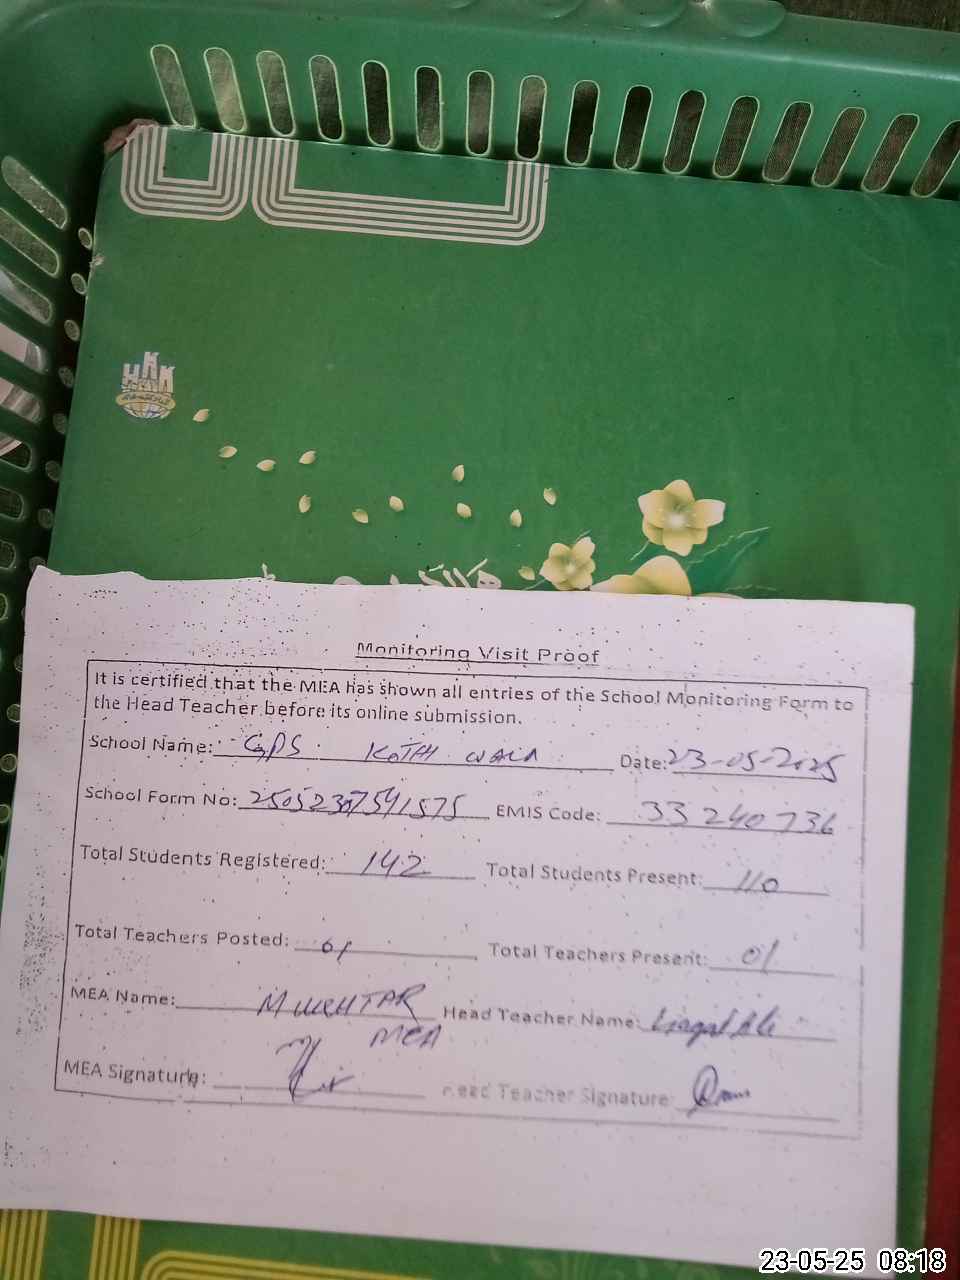 Monitoring Visit Proof
It is certified that the MEA has shown all entries of the School Monitoring Form to
the Head Teacher before its online submission.
School Name: GPS KOTHI WALA Date: 23-05-2025
School Form No: 25052307541575 EMIS Code: 33240736
Total Students Registered: 142 Total Students Present: 110
Total Teachers Posted: 01 Total Teachers Present: 01
MEA Name: MUKHTAR Head Teacher Name: Liaqat Ali
MEA
MEA Signature: Head Teacher Signature:
23-05-25 08:18